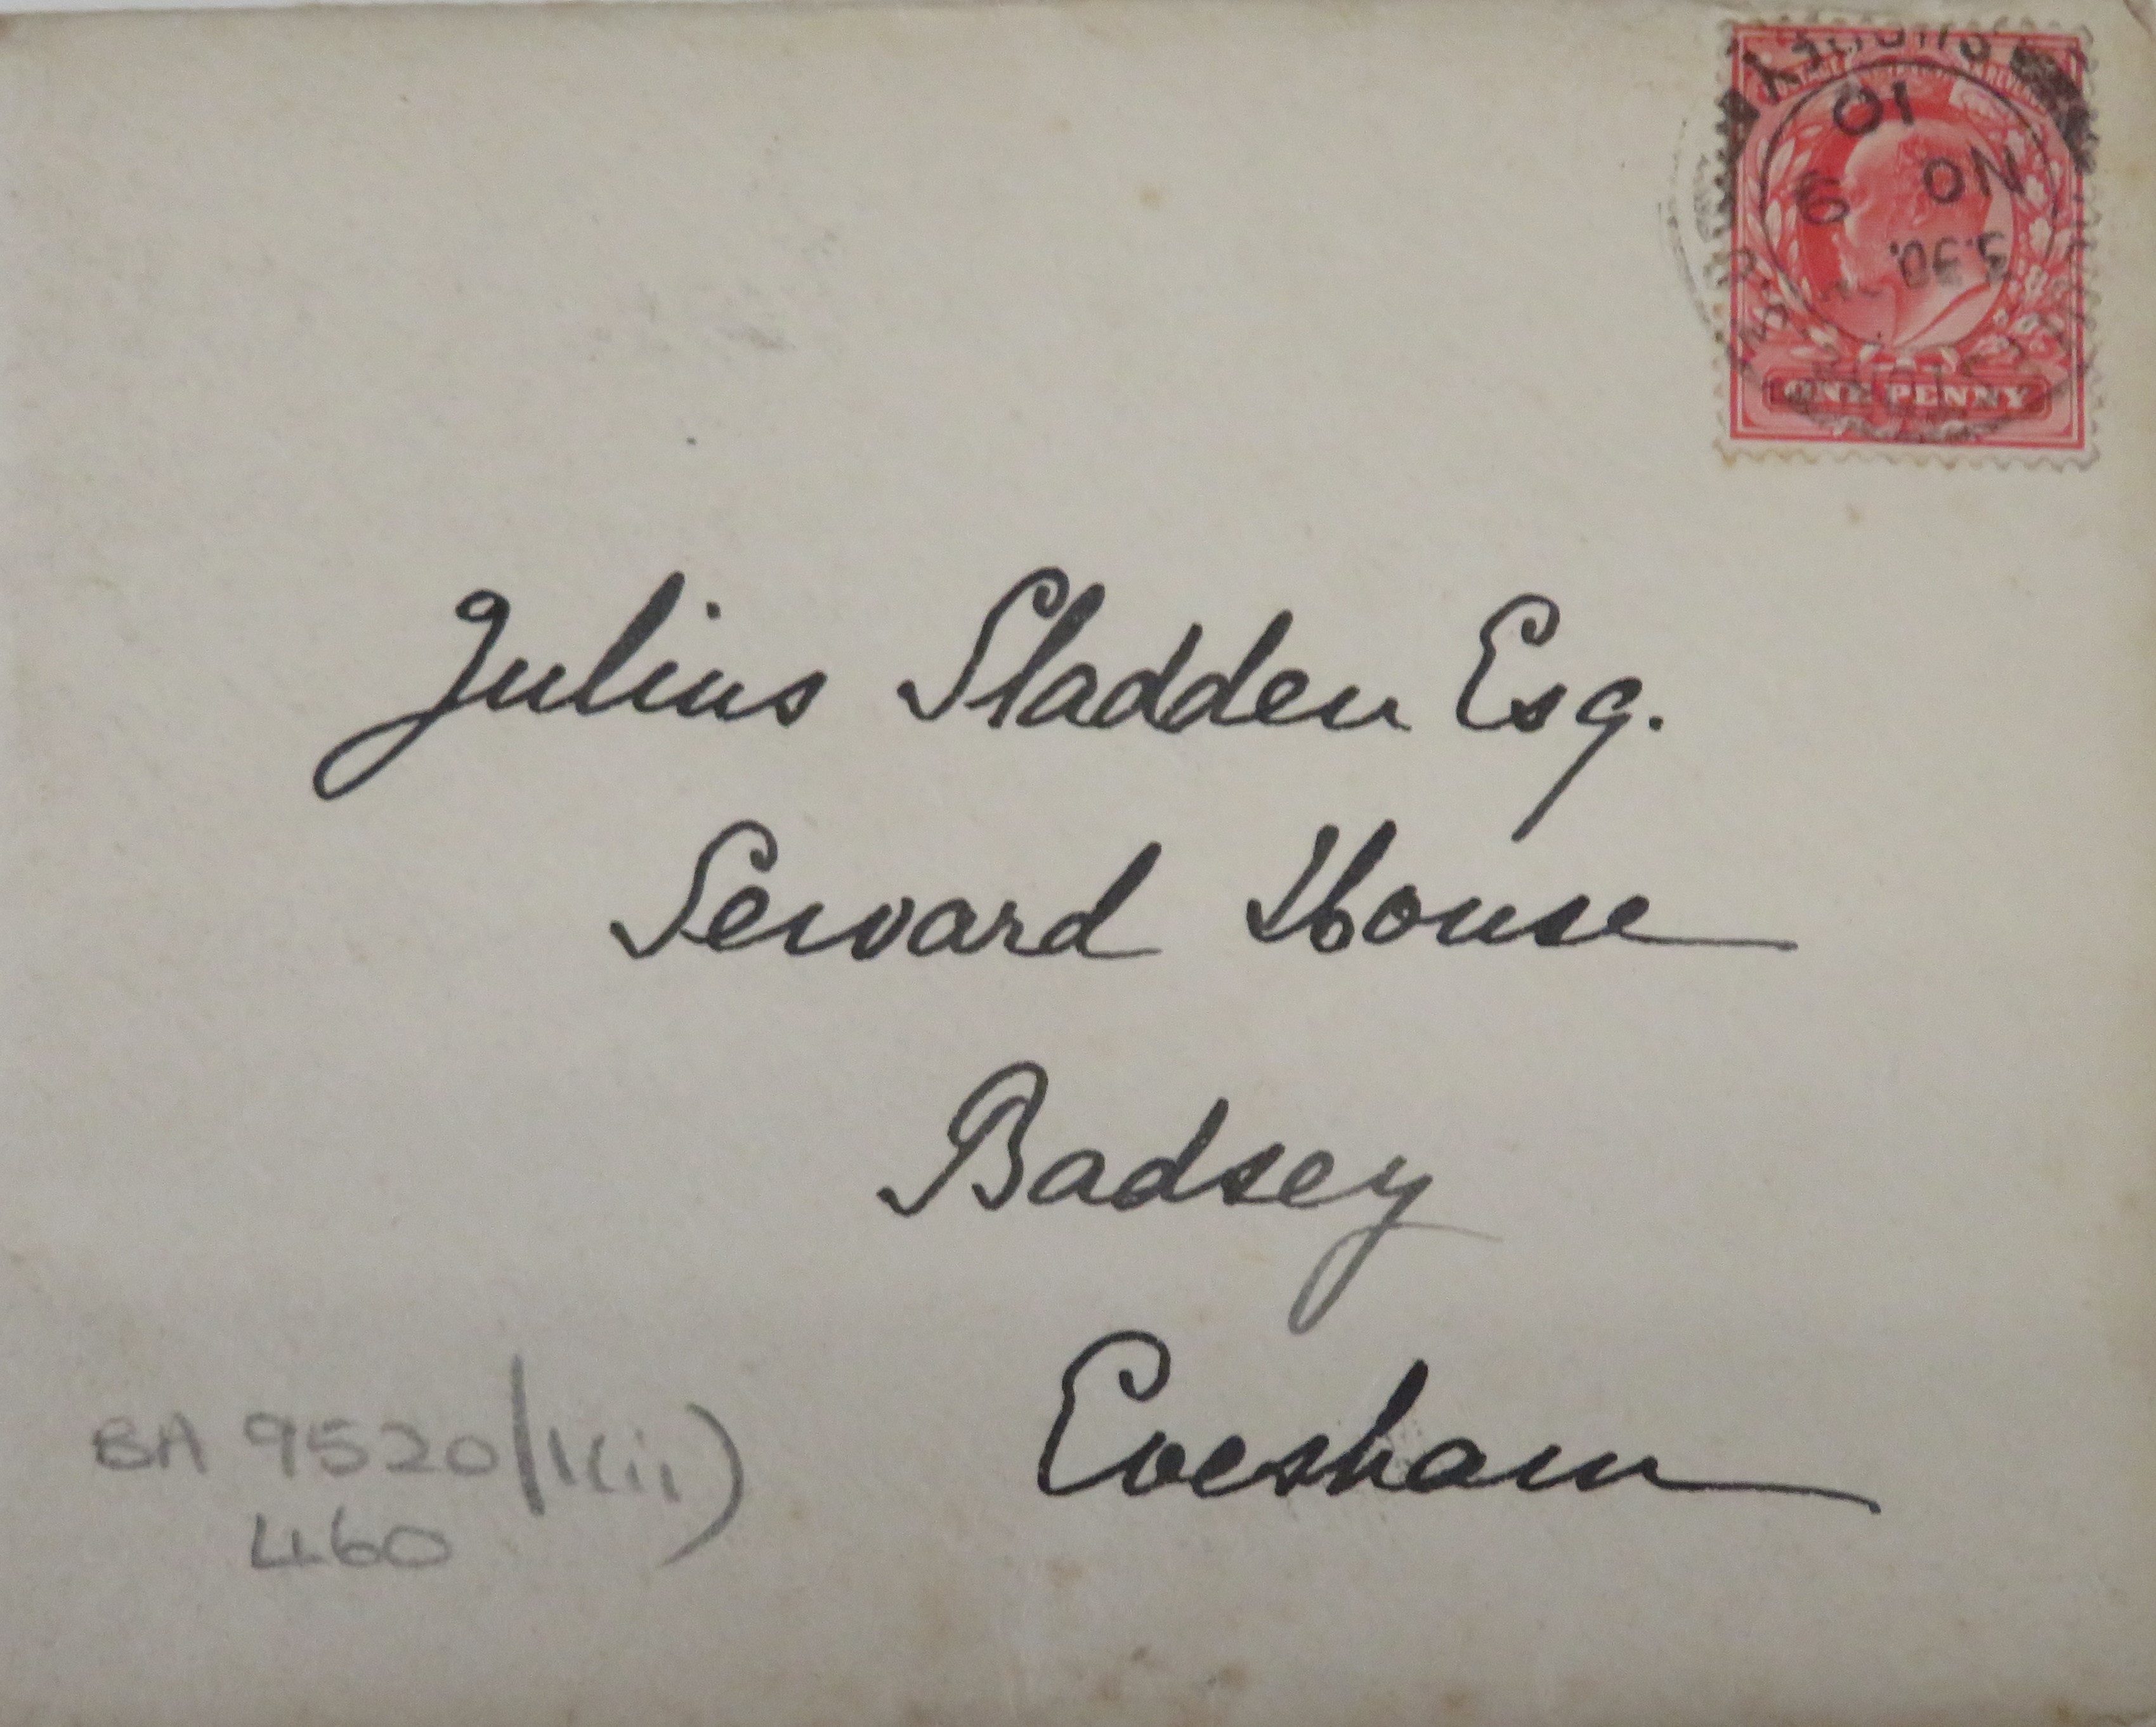 ONE PENNY
Julius Sladden Esq.
Seward House
Badsey
Evesham
BA 9520/1(ii)
460